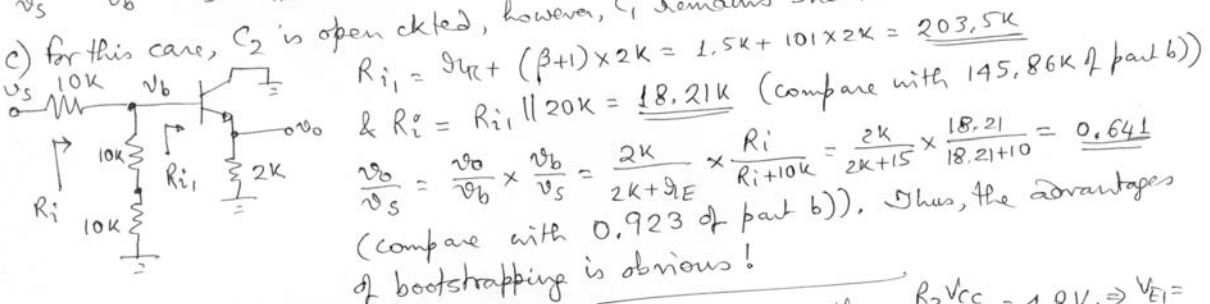 vs vb
c) for this case, C2 is open ckted, however, C1 remains
Ri1 = rπ + (β+1)×2K = 1.5K + 101×2K = 203.5K
& Ri = Ri1 || 20K = 18.21K (compare with 145.86K of part b))
vo/vs = vo/vb × vb/vs = 2K/(2K+rE) × Ri/(Ri+10K) = 2K/(2K+15) × 18.21/(18.21+10) = 0.641
(compare with 0.923 of part b)). Thus, the advantages
of bootstrapping is obvious!
vs 10K vb
vo
10K Ri1 2K
Ri
10K
R2VCC = 1.8V, ⇒ VE1 =